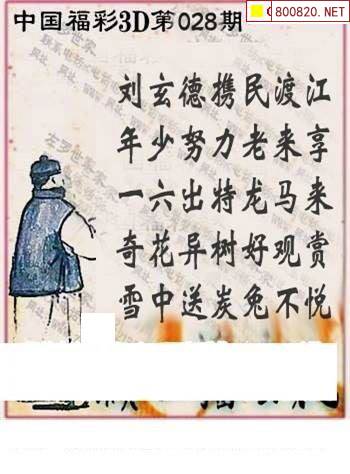 中国福彩3D第028期
800820.NET
刘玄德携民渡江
年少努力老来享
一六出特龙马来
奇花异树好观赏
雪中送炭兔不悦